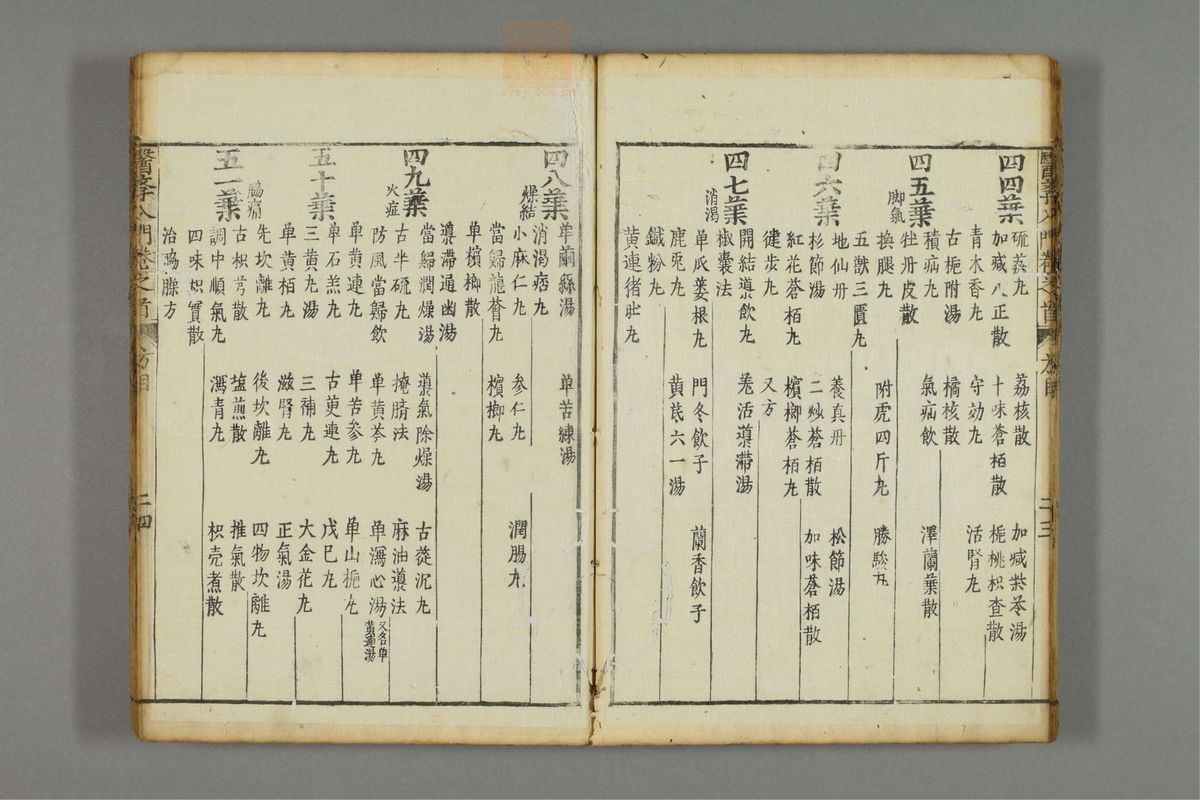 四四葉
硫荔丸 荔核散 加减柴苓湯
加减八正散 十味蒼栢散 梔桃枳查散
青木香丸 守効丸 活腎丸
古梔附湯 橘核散
積疝丸 氣疝飲 澤蘭葉散
四五葉
脚氣
牡丹皮散
換腿丸 附虎四斤丸 勝駿丸
五獸三匱丸
地仙丹 養真丹 松節湯
四六葉
杉節湯 二炒蒼栢散 加味蒼栢散
紅花蒼栢丸 檳榔蒼栢丸
健步丸 又方
開結導飲丸 羗活導滯湯
四七葉
消渴
椒囊法
单瓜蔞根丸 門冬飲子 蘭香飲子
鹿兎丸 黄芪六一湯
鐵粉丸
黄連猪肚丸
四八葉
单繭絲湯 单苦練湯
消渴痞丸
燥結
小麻仁丸 参仁丸 潤腸丸
當歸龍薈丸 檳榔丸
单檳榔散
導滯通幽湯
四九葉
當歸潤燥湯 導氣除燥湯 古蓯沉丸
古半硫丸 掩臍法 麻油導法
火症
防風當歸飲 单黄芩丸 单瀉心湯 又名单黄連湯
单黄連丸 单苦参丸 单山梔丸
五十葉
单石羔丸 古茰連丸 戊巳丸
三黄丸湯 三補丸 大金花丸
单黄栢丸 滋腎丸 正氣湯
先坎離丸 後坎離丸 四物坎離丸
五一葉
脇痛
古枳芎散 塩煎散 推氣散
調中順氣丸 瀉青丸 枳壳煮散
四味枳實散
治脇臊方
醫學入門卷之首 方目 二十三
醫學入門卷之首 方目 二四